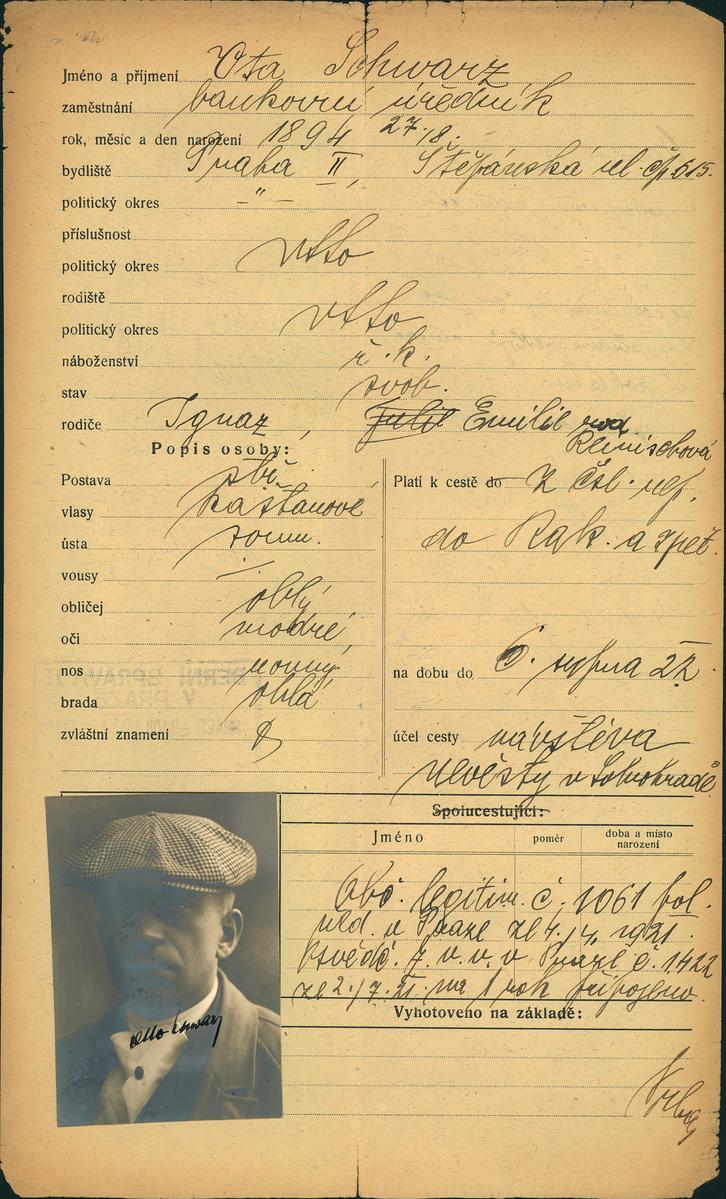 Jméno a příjmení Ota Schwarz
zaměstnání bankovní úředník
rok, měsíc a den narození 1894 27./8.
bydliště Praha II, Štěpánská ul. čp. 515.
politický okres -"-
příslušnost
politický okres
rodiště
politický okres
náboženství ř. k.
stav svob.
rodiče Ignaz, Julie Emilie rod.
Reinischová
Popis osoby:
Postava stř.
vlasy kaštanové
ústa soum.
vousy ./.
obličej oblý
oči modré
nos rovný
brada oblá
zvláštní znamení
Platí k cestě do z Čsl. rep.
do Rak. a zpět.
na dobu do 6. srpna 22
účel cesty návštěva
nevěsty v
Spolucestující:
Jméno poměr doba a místo narození
Obč. legitim. č. 1061 pol.
řed. v Praze ze 4./4. 1921.
Osvědč. z. v. v. v Praze č. 1422
ze 2./7. 21. na 1 rok připojeno.
Vyhotoveno na základě:
Otto Schwarz